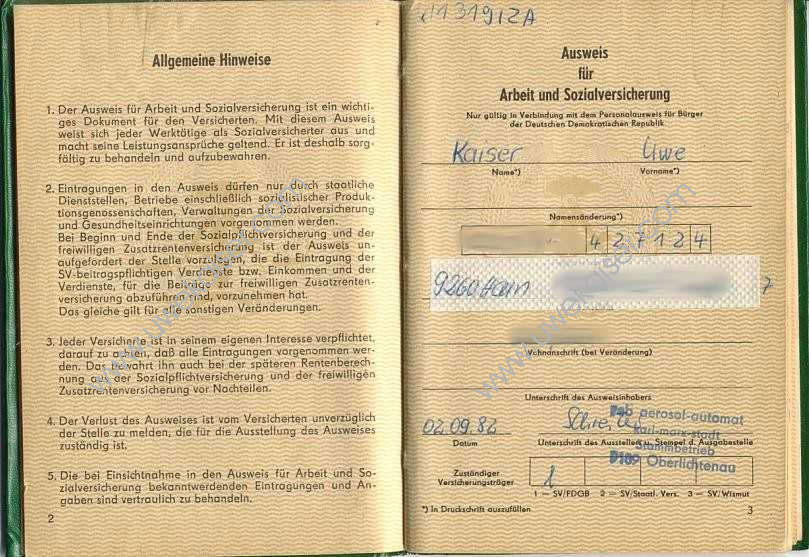 Allgemeine Hinweise
1. Der Ausweis für Arbeit und Sozialversicherung ist ein wichti-
ges Dokument für den Versicherten. Mit diesem Ausweis
weist sich jeder Werktätige als Sozialversicherter aus und
macht seine Leistungsansprüche geltend. Er ist deshalb sorg-
fältig zu behandeln und aufzubewahren.
2. Eintragungen in den Ausweis dürfen nur durch staatliche
Dienststellen, Betriebe einschließlich sozialistischer Produk-
tionsgenossenschaften, Verwaltungen der Sozialversicherung
und Gesundheitseinrichtungen vorgenommen werden.
Bei Beginn und Ende der Sozialpflichtversicherung und der
freiwilligen Zusatzrentenversicherung ist der Ausweis un-
aufgefordert der Stelle vorzulegen, die die Eintragung der
SV-beitragspflichtigen Verdienste bzw. Einkommen und der
Verdienste, für die Beiträge zur freiwilligen Zusatzrenten-
versicherung abzuführen sind, vorzunehmen hat.
Das gleiche gilt für alle sonstigen Veränderungen.
3. Jeder Versicherte ist in seinem eigenen Interesse verpflichtet,
darauf zu achten, daß alle Eintragungen vorgenommen wer-
den. Das bewahrt ihn auch bei der späteren Rentenberech-
nung aus der Sozialpflichtversicherung und der freiwilligen
Zusatzrentenversicherung vor Nachteilen.
4. Der Verlust des Ausweises ist vom Versicherten unverzüglich
der Stelle zu melden, die für die Ausstellung des Ausweises
zuständig ist.
5. Die bei Einsichtnahme in den Ausweis für Arbeit und So-
zialversicherung bekanntwerdenden Eintragungen und An-
gaben sind vertraulich zu behandeln.
2
www.uwekaiser.com
Ausweis
für
Arbeit und Sozialversicherung
Nur gültig in Verbindung mit dem Personalausweis für Bürger
der Deutschen Demokratischen Republik
Kaiser Uwe
Name*) Vorname*)
Namensänderung*)
4 2 7 1 2 4
9260 Hain 7
Wohnanschrift (bei Veränderung)
Unterschrift des Ausweisinhabers
02.09.82
Datum Unterschrift des Ausstellers u. Stempel d. Ausgabestelle
aerosol-automat
karl-marx-stadt
Stammbetrieb
Oberlichtenau
Zuständiger
Versicherungsträger 1
1 — SV/FDGB 2 — SV/Staatl. Vers. 3 — SV/Wismut
*) In Druckschrift auszufüllen
3
www.uwekaiser.com